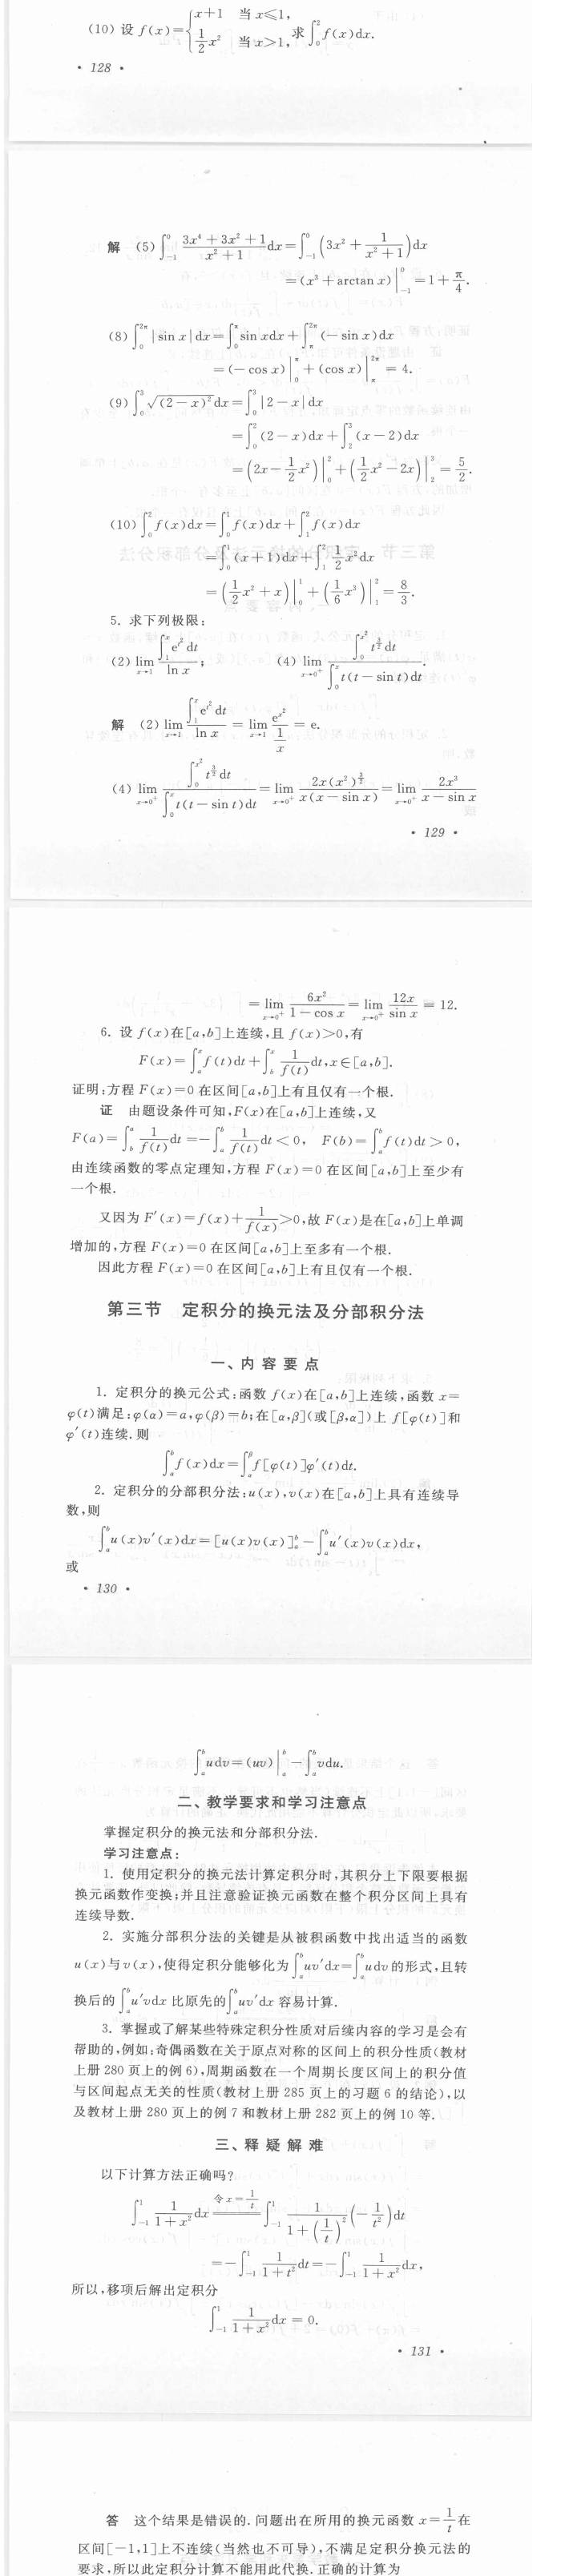 (10) 设 f(x)={x+1 当 x≤1, 1/2 x² 当 x>1, 求∫₀² f(x)dx.
• 128 •
解 (5) ∫₋₁⁰ (3x⁴+3x²+1)/(x²+1) dx=∫₋₁⁰ (3x²+1/(x²+1))dx
=(x³+arctan x)|₋₁⁰=1+π/4.
(8) ∫₀^{2π}|sin x|dx=∫₀^π sin xdx+∫_π^{2π}(-sin x)dx
=(-cos x)|₀^π+(cos x)|_π^{2π}=4.
(9) ∫₀³ √((2-x)²)dx=∫₀³|2-x|dx
=∫₀²(2-x)dx+∫₂³(x-2)dx
=(2x-1/2 x²)|₀²+(1/2 x²-2x)|₂³=5/2.
(10) ∫₀² f(x)dx=∫₀¹ f(x)dx+∫₁² f(x)dx
=∫₀¹(x+1)dx+∫₁² 1/2 x²dx
=(1/2 x²+x)|₀¹+(1/6 x³)|₁²=8/3.
5. 求下列极限:
(2) lim_{x→1} (∫₁^x e^{t²}dt)/(ln x); (4) lim_{x→0⁺} (∫₀^{x²} t^{3/2}dt)/(∫₀^x t(t-sin t)dt).
解 (2) lim_{x→1} (∫₁^x e^{t²}dt)/(ln x)=lim_{x→1} e^{x²}/(1/x)=e.
(4) lim_{x→0⁺} (∫₀^{x²} t^{3/2}dt)/(∫₀^x t(t-sin t)dt)=lim_{x→0⁺} 2x(x²)^{3/2}/(x(x-sin x))=lim_{x→0⁺} 2x³/(x-sin x)
• 129 •
=lim_{x→0⁺} 6x²/(1-cos x)=lim_{x→0⁺} 12x/sin x=12.
6. 设 f(x)在[a,b]上连续,且 f(x)>0,有
F(x)=∫ₐ^x f(t)dt+∫_b^x 1/f(t) dt,x∈[a,b].
证明:方程 F(x)=0 在区间[a,b]上有且仅有一个根.
证 由题设条件可知,F(x)在[a,b]上连续,又
F(a)=∫_b^a 1/f(t) dt=-∫_a^b 1/f(t) dt<0, F(b)=∫_a^b f(t)dt>0,
由连续函数的零点定理知,方程 F(x)=0 在区间[a,b]上至少有
一个根.
又因为 F′(x)=f(x)+1/f(x)>0,故 F(x)是在[a,b]上单调
增加的,方程 F(x)=0 在区间[a,b]上至多有一个根.
因此方程 F(x)=0 在区间[a,b]上有且仅有一个根.
第三节 定积分的换元法及分部积分法
一、内容要点
1. 定积分的换元公式:函数 f(x)在[a,b]上连续,函数 x=
φ(t)满足:φ(α)=a,φ(β)=b;在[α,β](或[β,α])上 f[φ(t)]和
φ′(t)连续.则
∫_a^b f(x)dx=∫_α^β f[φ(t)]φ′(t)dt.
2. 定积分的分部积分法:u(x),v(x)在[a,b]上具有连续导
数,则
∫_a^b u(x)v′(x)dx=[u(x)v(x)]_a^b-∫_a^b u′(x)v(x)dx,
或
• 130 •
∫_a^b udv=(uv)|_a^b-∫_a^b vdu.
二、教学要求和学习注意点
掌握定积分的换元法和分部积分法.
学习注意点:
1. 使用定积分的换元法计算定积分时,其积分上下限要根据
换元函数作变换;并且注意验证换元函数在整个积分区间上具有
连续导数.
2. 实施分部积分法的关键是从被积函数中找出适当的函数
u(x)与v(x),使得定积分能够化为∫_a^b uv′dx=∫_a^b udv 的形式,且转
换后的∫_a^b u′vdx 比原先的∫_a^b uv′dx 容易计算.
3. 掌握或了解某些特殊定积分性质对后续内容的学习是会有
帮助的,例如:奇偶函数在关于原点对称的区间上的积分性质(教材
上册 280 页上的例 6),周期函数在一个周期长度区间上的积分值
与区间起点无关的性质(教材上册 285 页上的习题 6 的结论),以
及教材上册 280 页上的例 7 和教材上册 282 页上的例 10 等.
三、释疑解难
以下计算方法正确吗?
∫₋₁¹ 1/(1+x²) dx (令 x=1/t)= ∫₋₁¹ 1/(1+(1/t)²) (-1/t²)dt
=-∫₋₁¹ 1/(1+t²) dt=-∫₋₁¹ 1/(1+x²) dx,
所以,移项后解出定积分
∫₋₁¹ 1/(1+x²) dx=0.
• 131 •
答 这个结果是错误的.问题出在所用的换元函数 x=1/t 在
区间[-1,1]上不连续(当然也不可导),不满足定积分换元法的
要求,所以此定积分计算不能用此代换.正确的计算为